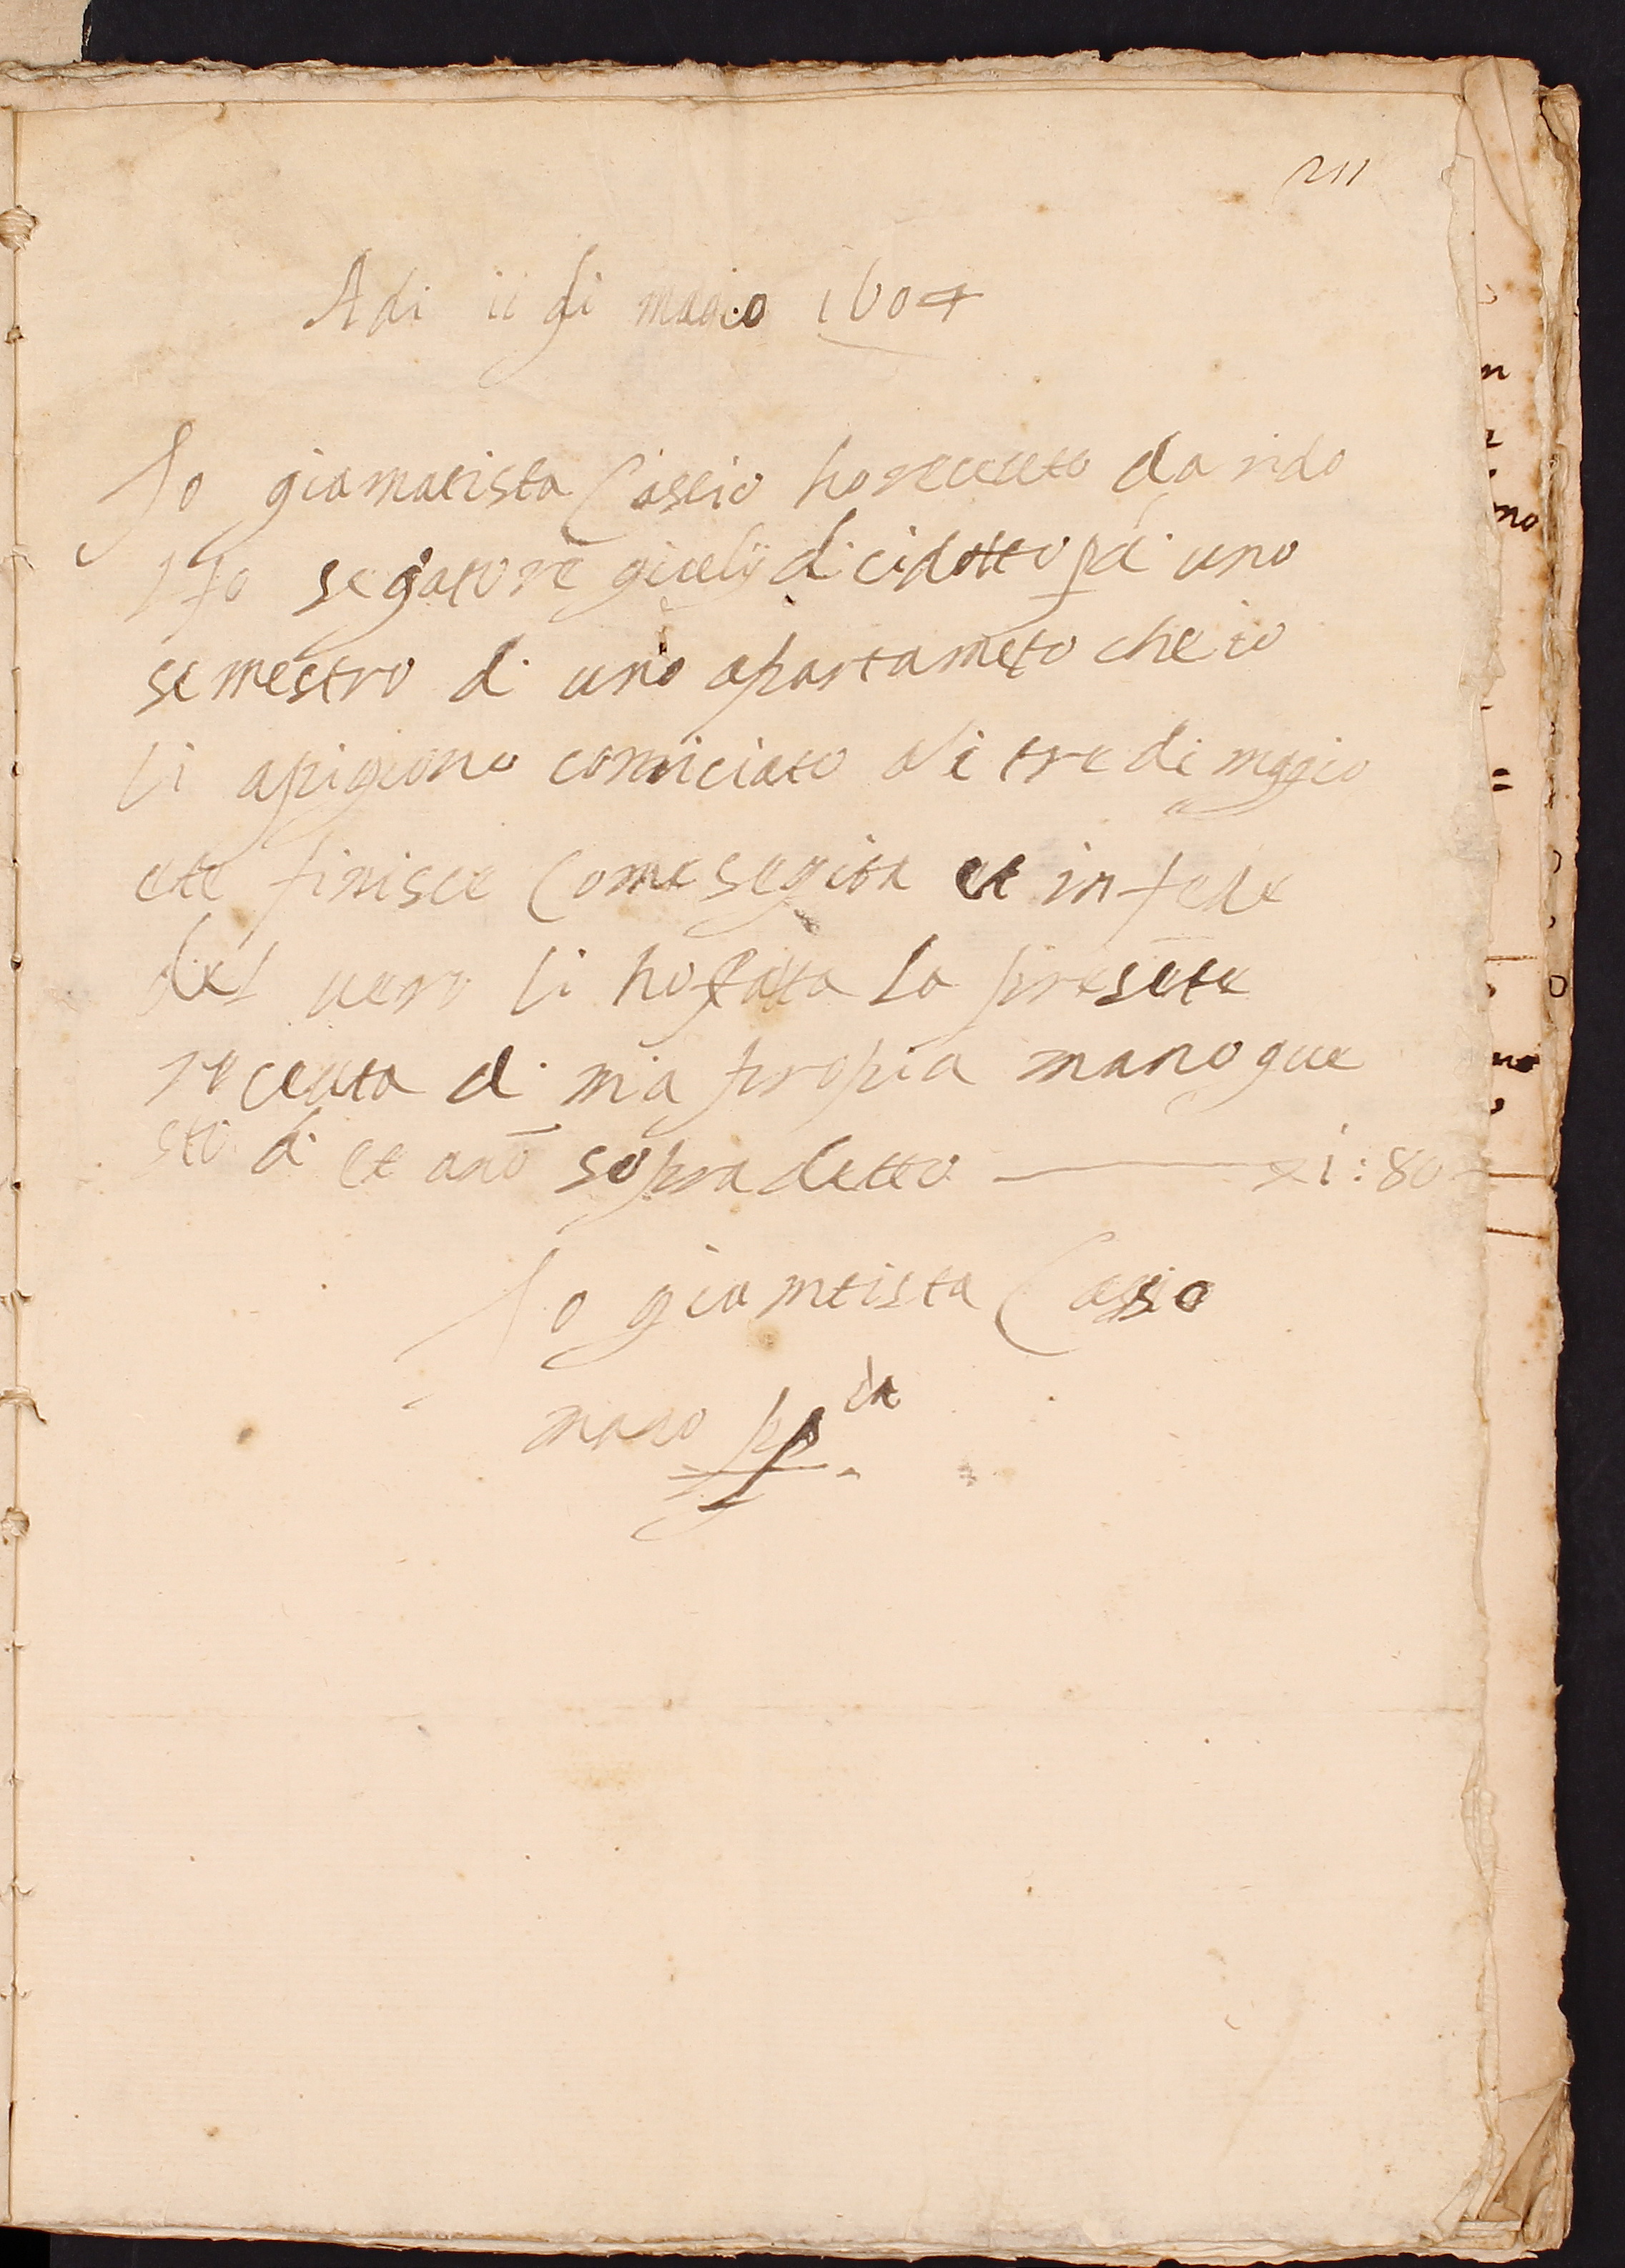 211
Adi ii di magio 1604
Io giamatista Cassio ho receuto da rido
lfo segatore giuelij dicidotto p di uno
semestro di uno apartameto che io
li apigiono cominciato ali tre di magio
ete finisce Come segita et in fede
del uero li ho fatta la presēte
receuta di mia propia mano que
sto di et anō sopra detto i : 80
Io giamtista Casso
mano pp da